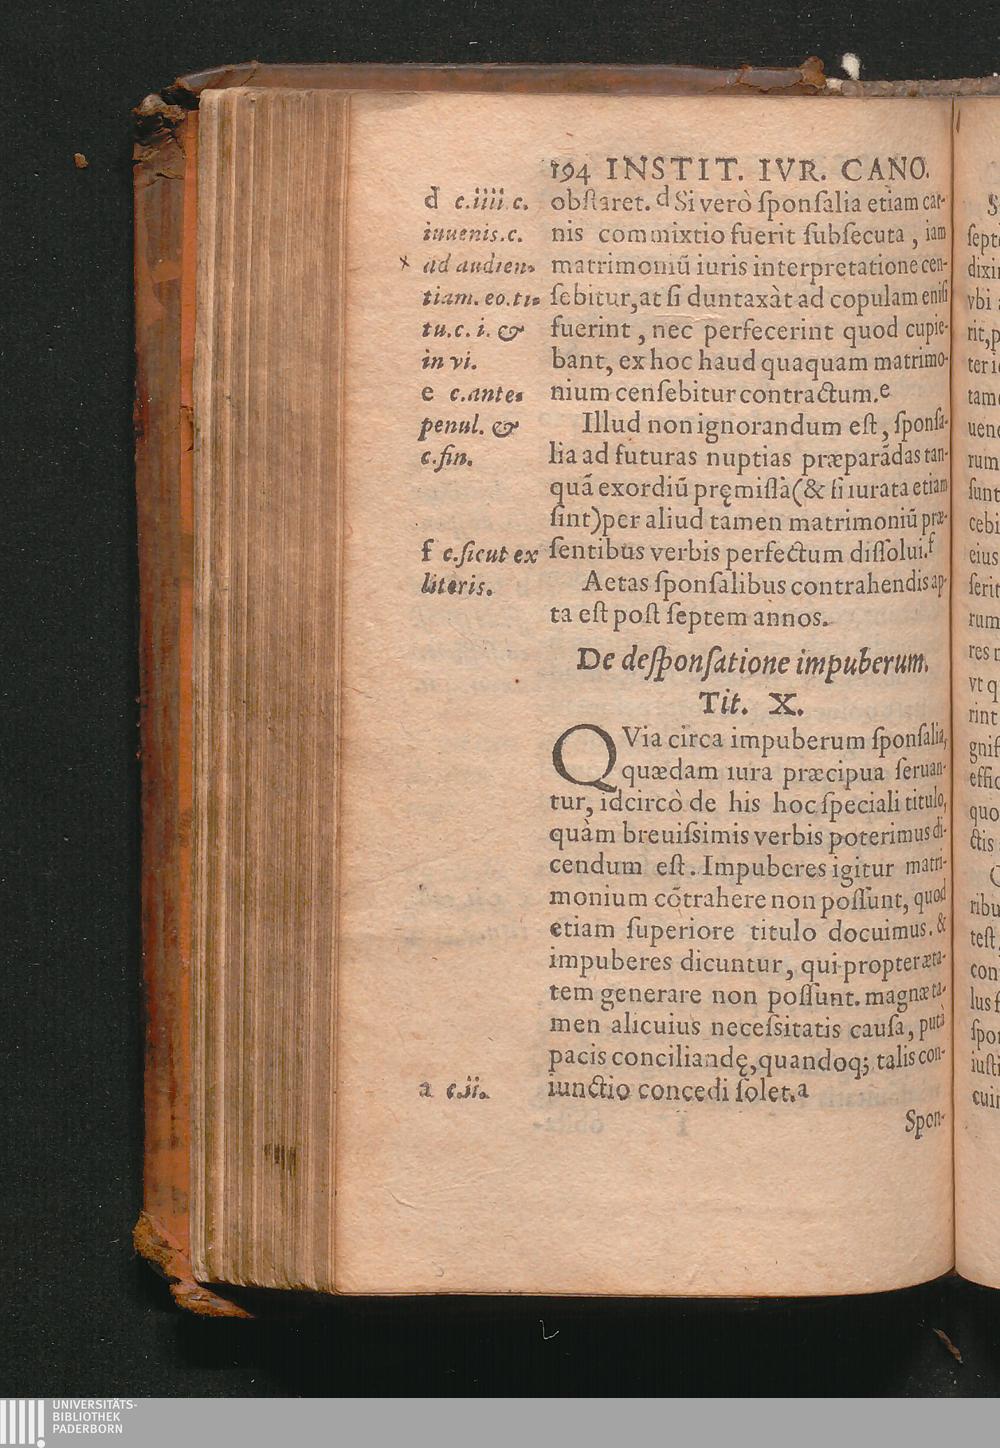 194 INSTIT. IVR. CANO.
obſtaret. d Si verò ſponſalia etiam car-
nis commixtio fuerit ſubſecuta, iam
matrimoniũ iuris interpretatione cen-
ſebitur, at ſi duntaxàt ad copulam eniſi
fuerint, nec perfecerint quod cupie-
bant, ex hoc haud quaquam matrimo-
nium cenſebitur contractum. e
Illud non ignorandum eſt, ſponſa-
lia ad futuras nuptias præparãdas tan-
quã exordiũ pręmiſſà (& ſi iurata etiam
ſint) per aliud tamen matrimoniũ præ-
ſentibus verbis perfectum diſſolui. f
Aetas ſponſalibus contrahendis ap-
ta eſt poſt ſeptem annos.
De deſponſatione impuberum.
Tit. X.
QVia circa impuberum ſponſalia,
quædam iura præcipua ſeruan-
tur, idcircò de his hoc ſpeciali titulo,
quàm breuiſsimis verbis poterimus di-
cendum eſt. Impuberes igitur matri-
monium cõtrahere non poſſunt, quod
etiam ſuperiore titulo docuimus. &
impuberes dicuntur, qui propter æta-
tem generare non poſſunt. magnæ ta-
men alicuius neceſsitatis cauſa, putà
pacis conciliandę, quandoq; talis con-
iunctio concedi ſolet. a
Spon-
d c.iiii c.
iuuenis.c.
ad audien-
tiam. eo.ti-
tu.c. i. &
in vi.
e c.ante-
penul. &
c.fin.
f c.ſicut ex
literis.
a c.ii.
ſept
dixi
vbi
rit, p
tam
rum
ſunt
cebi
eius
ſerit
rum
vt q
rint
gnif
effic
quo
ctis
ribu
teſt,
con
lus f
ſpo
iuſti
cui
UNIVERSITÄTS-
BIBLIOTHEK
PADERBORN